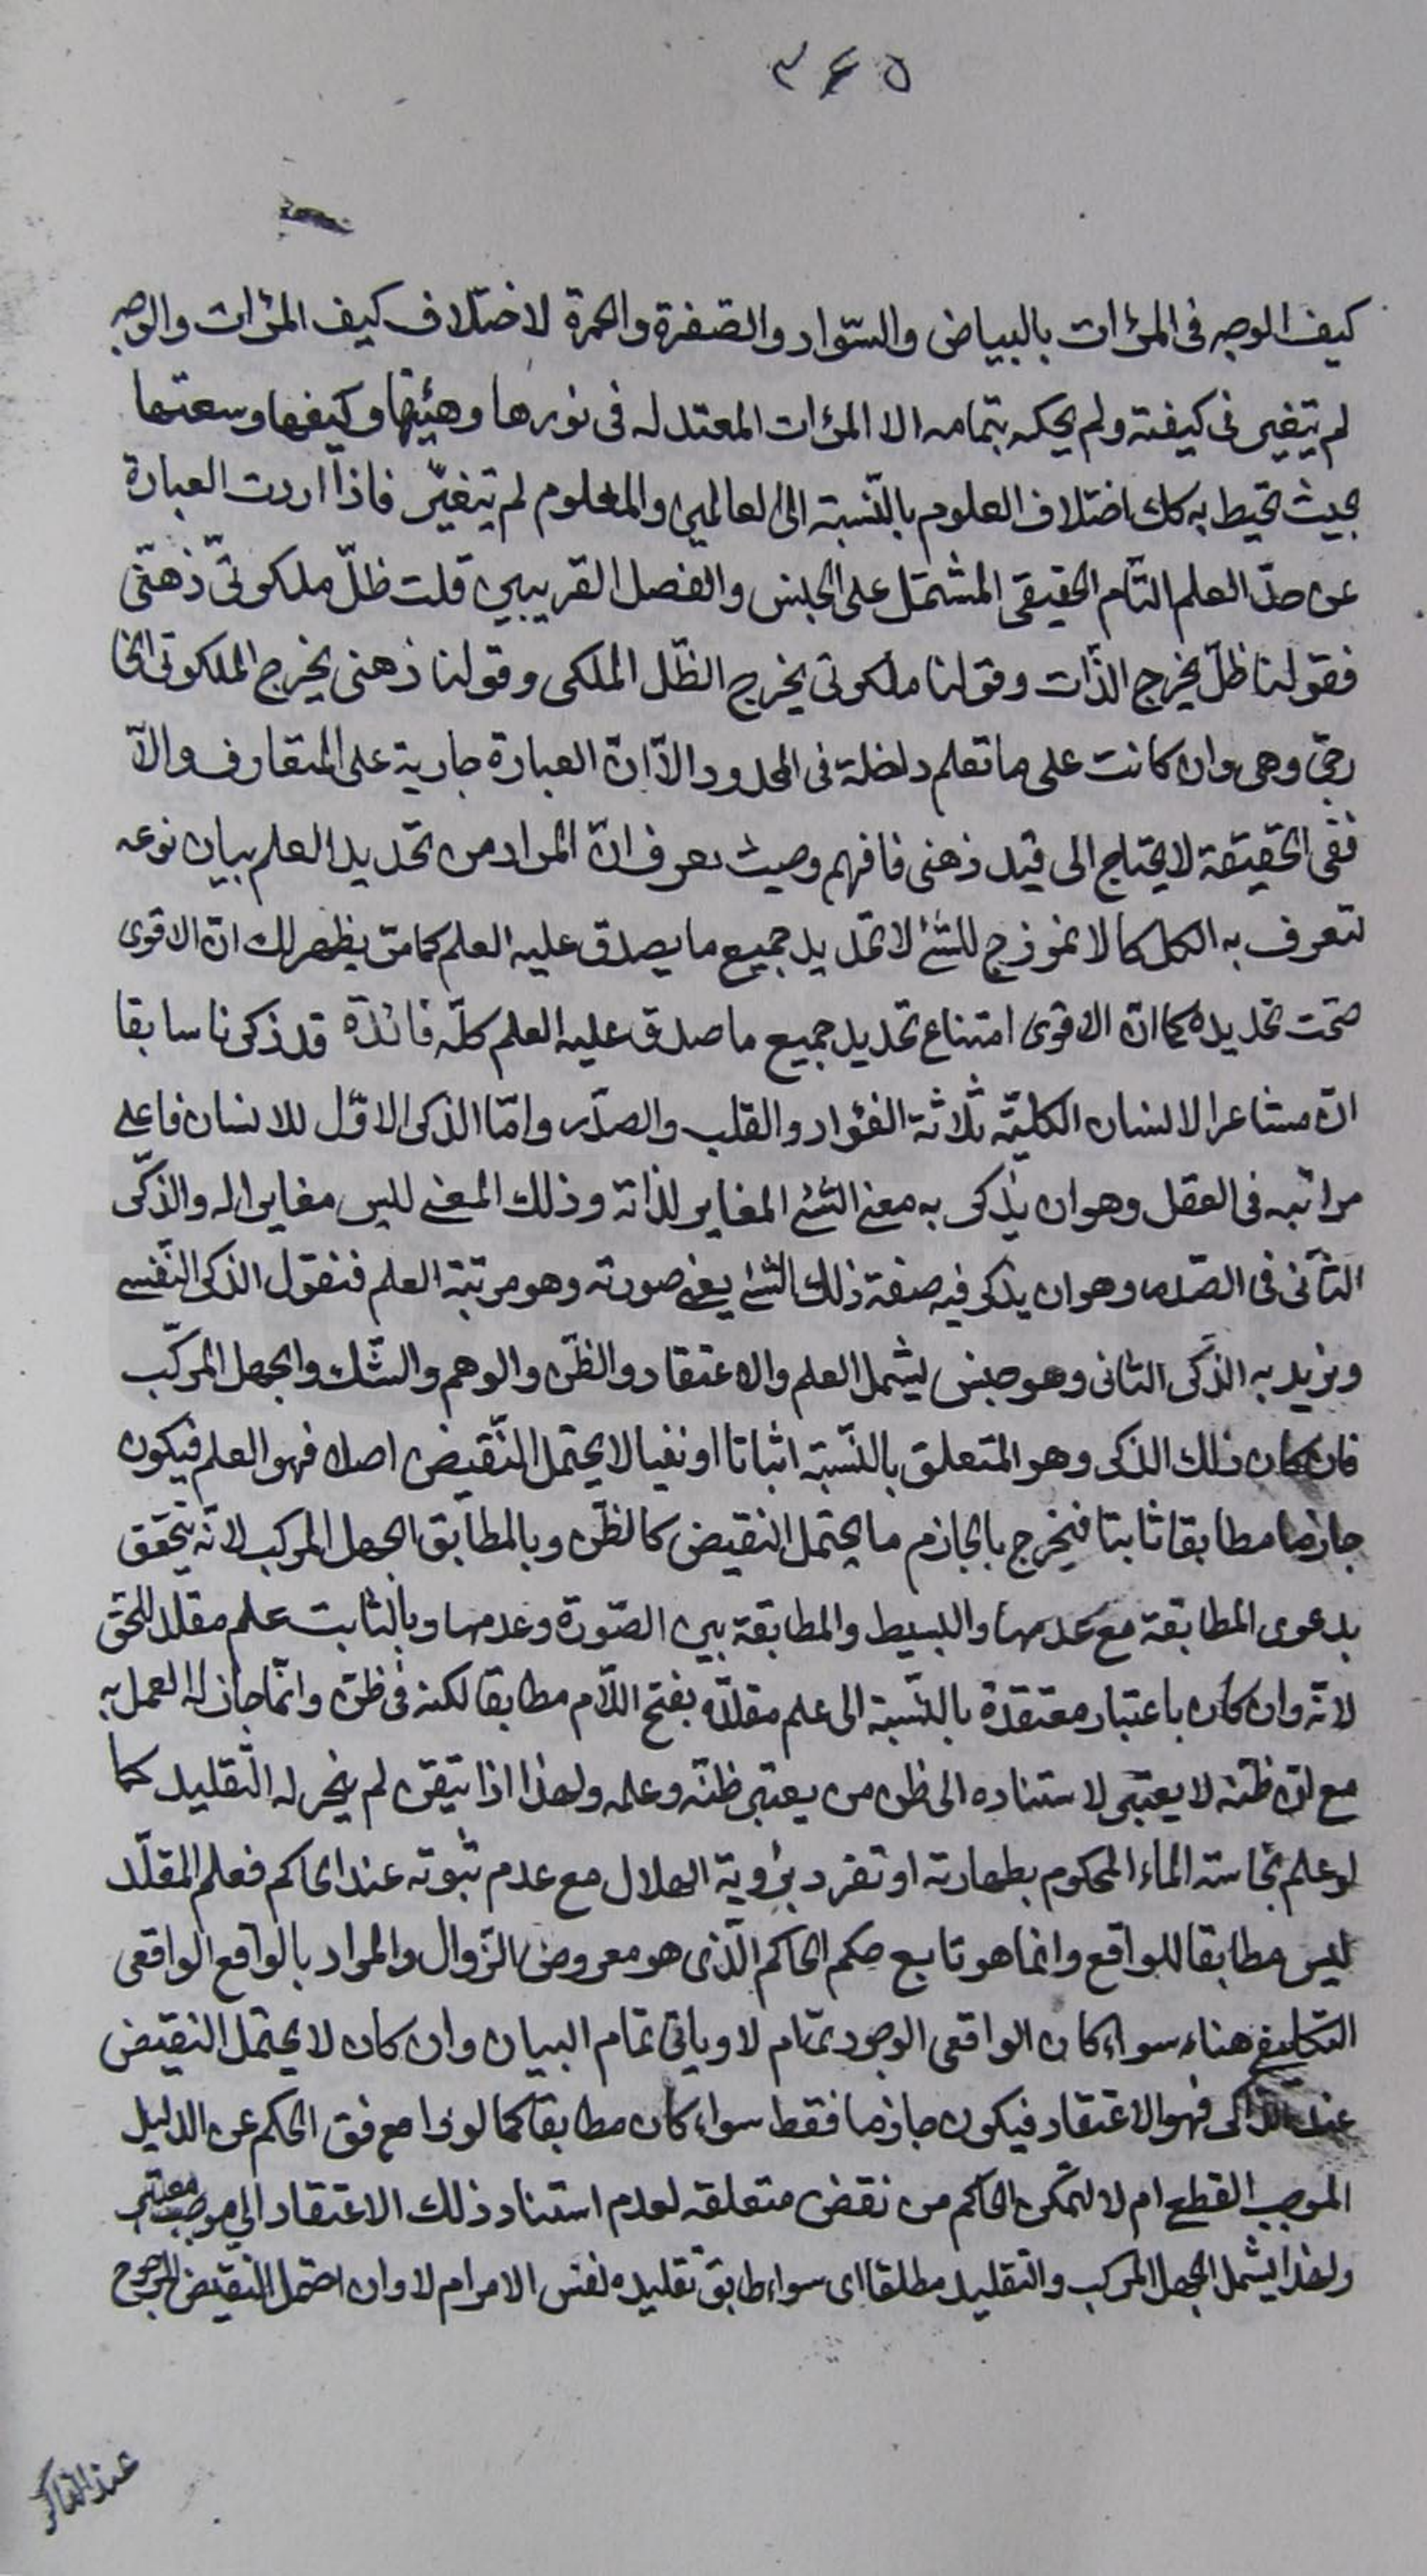 ٣٤٥
كيف الوجه فى المرآت بالبياض والسّواد والصّفرة والحمرة لاختلاف كيف المرآت والوجه
لم يتغير فى كيفته ولم يحكه بتمامه الا المرآت المعتدله فى نورها وهيئتها وكيفها وسعتها
بحيث تحيط به كك اختلاف العلوم بالنّسبة الى العالمين والمعلوم لم يتغيّر فاذا اردت العبارة
عن حدّ العلم التّام الحقيقى المشتمل على الجنس والفصل القريبين قلت ظلّ ملكوتىّ ذهنىّ
فقولنا ظلّ يخرج الذّات وقولنا ملكوتى يخرج الظّل الملكى وقولنا ذهنى يخرج الملكوتى الخا
رجى وهى وان كانت على ما تعلم داخلة فى المحدود الّا انّ العبارة جارية على المتعارف والّا
ففى الحقيقة لا يحتاج الى قيد ذهنى فافهم وحيث تعرف انّ المراد من تحديد العلم بيان نوعه
لتعرف به الكل كالانموذج للشئ لا تحديد جميع ما يصدق عليه العلم كما مرّ يظهر لك انّ الاقوى
صحّت تحديده كما انّ الاقوى امتناع تحديد جميع ما صدق عليه العلم كلّه فائدة قد ذكرنا سابقا
انّ مشاعر الانسان الكليّة ثلاثة الفؤاد والقلب والصّدر وامّا الذكر الاوّل للانسان فاعلى
مراتبه فى العقل وهو ان يذكر به معنى الشئ المغاير لذاته وذلك المعنى ليس مغايرا له والذّكر
الثّانى فى الصّدر وهو ان يذكر فيه صفة ذلك الشئ يعنى صورته وهو مرتبة العلم فنقول الذكر النّفسى
ونريد به الذّكر الثانى وهو جنس ليشمل العلم والاعتقاد والظّن والوهم والشّك والجهل المركّب
فان كان ذلك الذكر وهو المتعلق بالنّسبة اثباتا او نفيا لا يحتمل النّقيض اصلا فهو العلم فيكون
جازما مطابقا ثابتا فيخرج بالجازم ما يحتمل النقيض كالظّن وبالمطابق الجهل المركب لانّه يتحقق
بدعوى المطابقة مع عدمها والبسيط والمطابقة بين الصّورة وعدمها وبالثابت علم مقلد المحق
لانّه وان كان باعتبار معتقدة بالنّسبة الى علم مقلدّه بفتح اللّام مطابقا لكنه فى ظنّ وانّما جاز له العمل به
مع انّ ظنّه لا يعتبر لاستناده الى ظن من يعتبر ظنّه وعلمه ولهذا اذا تيقن لم يجز له التّقليد كما
لو علم نجاسته الماء المحكوم بطهارته او تفرد برؤية الهلال مع عدم ثبوته عند الحاكم فعلم المقلّد
ليس مطابقا للواقع وانما هو تابع حكم الحاكم الّذى هو معروض الزّوال والمراد بالواقع الواقعى
التكليفى هنا سواء كان الواقعى الوجودى ام لا ويأتى تمام البيان وان كان لا يحتمل النقيض
عند الذاكر فهو الاعتقاد فيكون جازما فقط سواء كان مطابقا كما لو فق الحكم عن الدليل
الموجب القطع ام لا لتمكن الحاكم من نقض متعلقه لعدم استناد ذلك الاعتقاد الى موجب معتبر
ولهذا يشمل الجهل المركب والتقليد مطلقا اى سواء طابق تقليده نفس الامر ام لا وان احتمل النقيض المرجوح
عند الذاكر